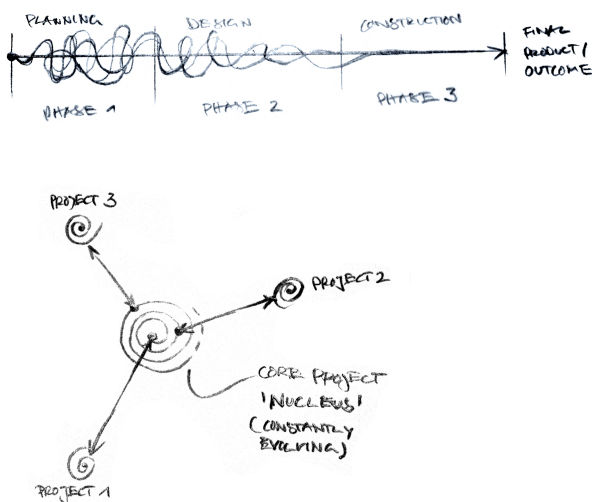 PLANNING
DESIGN
CONSTRUCTION
FINAL
PRODUCT/
OUTCOME
PHASE 1
PHASE 2
PHASE 3
PROJECT 3
PROJECT 2
CORE PROJECT
'NUCLEUS'
(CONSTANTLY
EVOLVING)
PROJECT 1